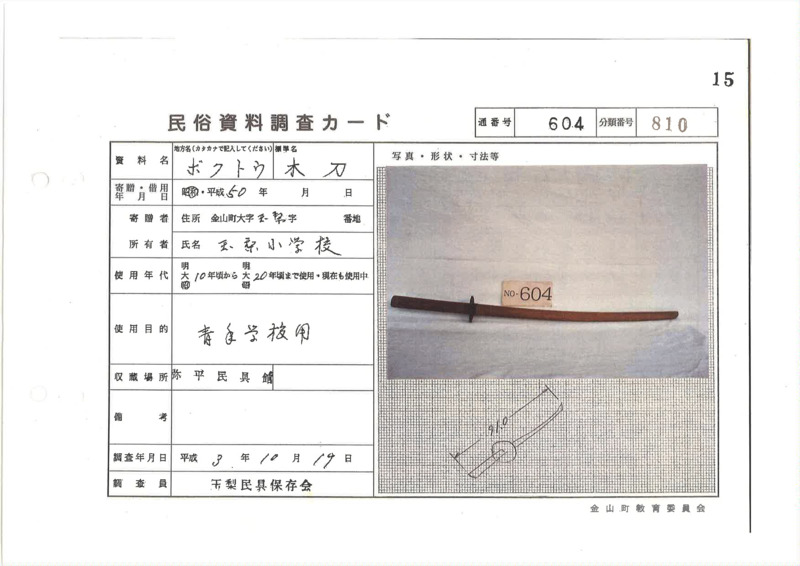 15
民俗資料調査カード
通番号 604 分類番号 810
資料名 地方名(カタカナで記入してください) ボクトウ 標準名 木刀
寄贈・借用年月日 昭和・平成 50年 月 日
寄贈者 住所 金山町大字玉梨字 番地
所有者 氏名 玉梨小学校
使用年代 明大昭10年頃から明大昭20年頃まで使用・現在も使用中
使用目的 青年学校用
収蔵場所 弥平民具館
備考
調査年月日 平成3年10月19日
調査員 玉梨民具保存会
写真・形状・寸法等
NO-604
91.0
金山町教育委員会